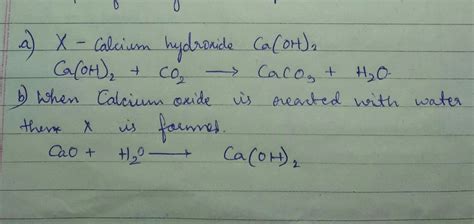 a) X - Calcium hydroxide Ca(OH)₂
Ca(OH)₂ + CO₂ → CaCO₃ + H₂O.
b) When Calcium oxide is reacted with water
then X is formed.
CaO + H₂O → Ca(OH)₂